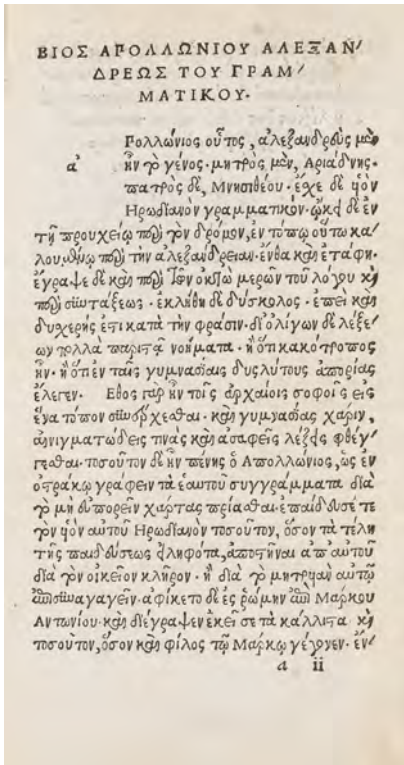 ΒΙΟΣ ΑΠΟΛΛΩΝΙΟΥ ΑΛΕΞΑΝ/
ΔΡΕΩΣ ΤΟΥ ΓΡΑΜ/
ΜΑΤΙΚΟΥ.
α Γολλώνιος οὗτος, ἀλεξανδρεὺς μὲν
ἦν τὸ γένος. μητρὸς μὲν, Αριάδνης.
πατρὸς δὲ, Μνησιθέου. ἔχε δὲ ὑὸν
Ηρωδιανὸν γραμματικόν. ᾤκει δὲ ἐν
τῇ προυχείῳ περὶ τὸν δρόμον, ἐν τόπῳ οὕτω κα/
λουμένῳ περὶ τὴν ἀλεξάνδρειαν. ἔνθα καὶ ἐτάφη.
ἔγραψε δὲ καὶ περὶ τῶν ὀκτὼ μερῶν τοῦ λόγου καὶ
περὶ συντάξεως. ἐκλήθη δὲ δύσκολος. ἐπεὶ καὶ
δυχερής ἐστι κατὰ τὴν φράσιν. δι' ὀλίγων δὲ λέξε/
ων πολλὰ παριστᾷ νοήματα. ἢ ὅτι κακότροπος
ἦν. ἢ ὅτι ἐν ταῖς γυμνασίαις δυςλύτους ἀπορίας
ἔλεγεν. Εθος γὰρ ἦν τοῖς ἀρχαίοις σοφοῖς εἰς
ἕνα τόπον συνέρχεσθαι. καὶ γυμνασίας χάριν,
αἰνιγματώδεις τινὰς καὶ ἀσαφεῖς λέξεις φθέγ/
γεσθαι. τοσοῦτον δὲ ἦν πένης ὁ Απολλώνιος, ὡς ἐν
ὀστράκῳ γράφειν τὰ ἑαυτοῦ συγγράμματα διὰ
τὸ μὴ εὐπορεῖν χάρτας πρίασθαι. ἐπαίδευσέ τε
τὸν ὑὸν αὐτοῦ Ηρωδιανὸν τοσοῦτον, ὅσον τὰ τέλη
τῆς παιδεύσεως εἰληφότα, ἀποστῆναι ἀπ' αὐτοῦ
διὰ τὸν οἰκεῖον κλῆρον. ἢ διὰ τὸ μητρυιὰν αὐτῷ
ἐπισυναγαγεῖν. ἀφίκετο δὲ ἐς ῥώμην ἐπὶ Μάρκου
Αντωνίου. καὶ διέγραψεν ἐκεῖσε τὰ κάλλιστα καὶ
τοσοῦτον, ὅσον καὶ φίλος τῷ Μάρκῳ γέγονεν. ἐν/
a ii